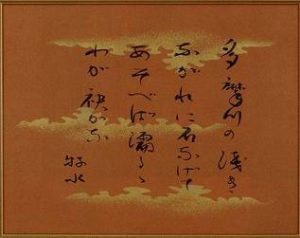 多摩川の浅き
ながれに石なげて
あそべば濡るゝ
わが袂かな
牧水